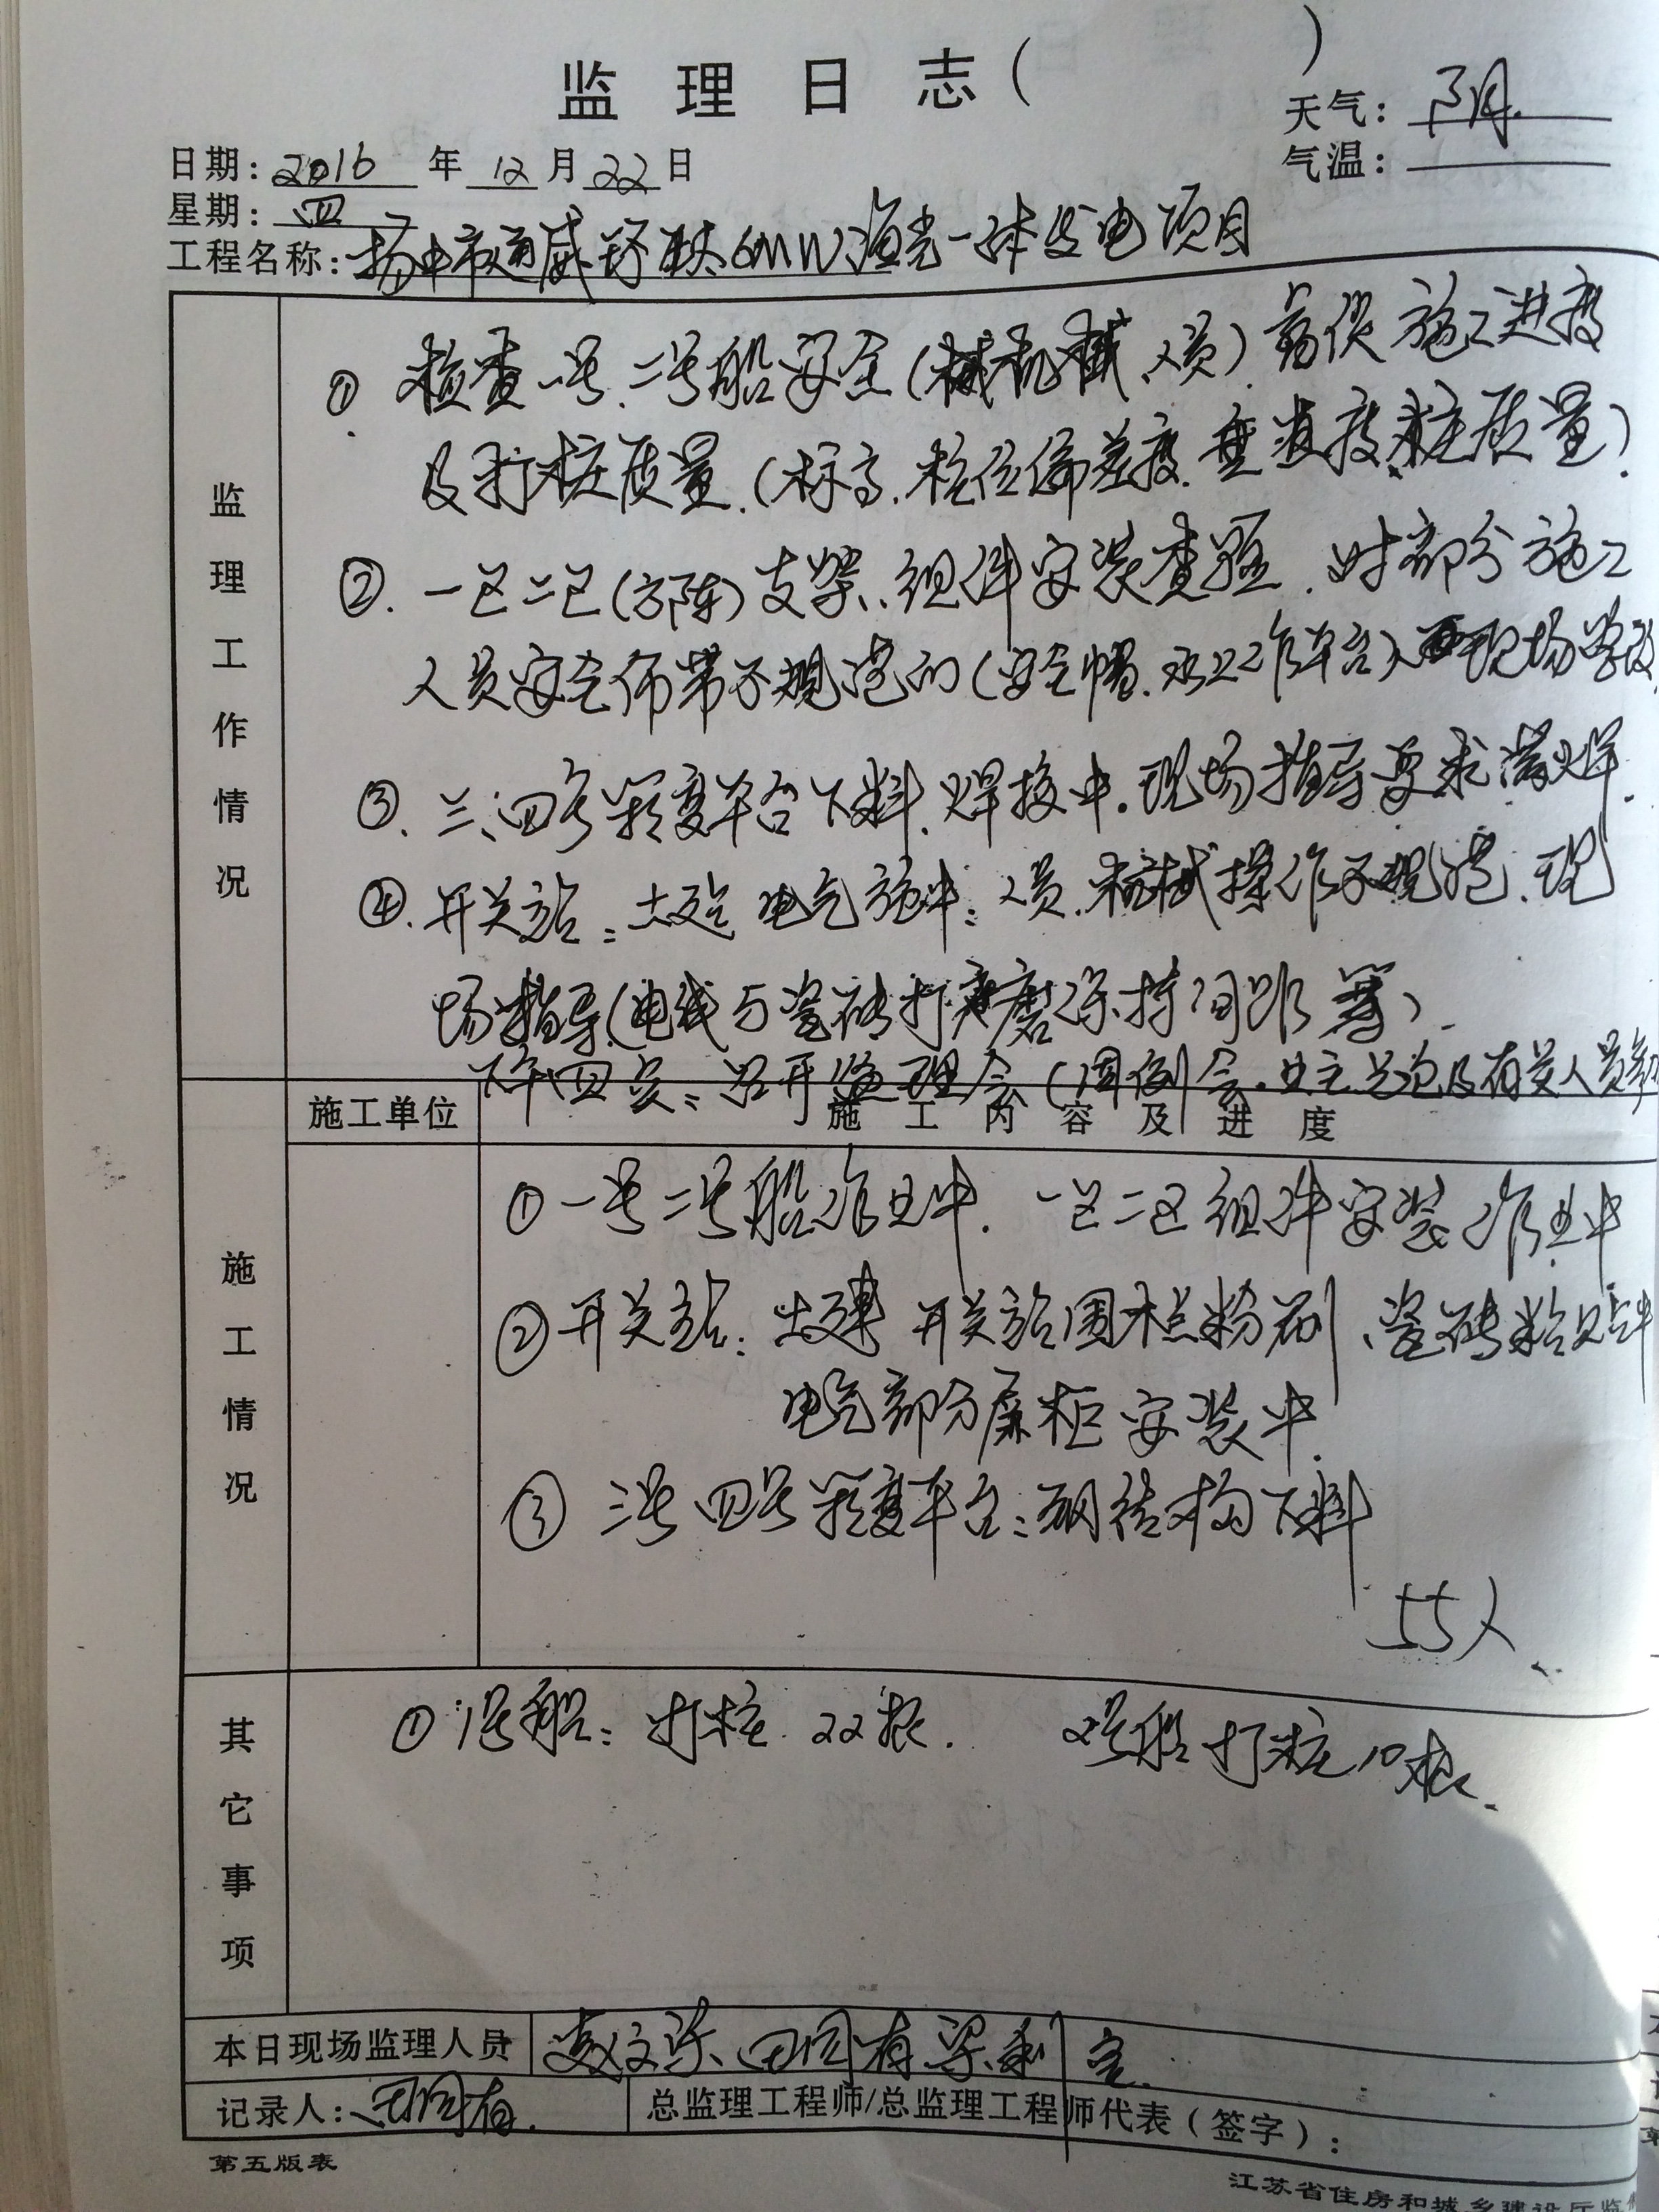 监理日志（ ）
天气：阴
日期：2016年12月22日
气温：
星期：四
工程名称：扬中市通威 6MW渔光一体发电项目
监理工作情况
① 检查一号、二号船安全（机械、人员）、施工进度
及打桩质量.（标高、桩位偏差度、垂直度、桩质量）.
②. 一区二区（方阵）支架、组件安装查验. 对部分施工
人员安全佩带不规范的（安全帽、水上工作平台）现场
③. 三、四号箱变平台下料、焊接中. 现场指导要求满焊.
④. 开关站：土建 电气施中：人员、机械操作不规范、现
场指导（电线与瓷砖打磨保持间距等）.
下午四点：召开监理会（周例会. 业主总包及有关人员参
施工单位
施工内容及进度
施工情况
① 一号二号船作业中. 一区二区组件安装作业中
② 开关站：土建 开关站围栏粉刷、瓷砖粘贴中
电气部分屏柜安装中.
③ 三号四号箱变平台：钢结构下料
55人
其它事项
① 1号船：打桩 22根. 2号船打桩10根.
本日现场监理人员 田同有 梁
记录人：田同有. 总监理工程师/总监理工程师代表（签字）：
第五版表
江苏省住房和城乡建设厅监